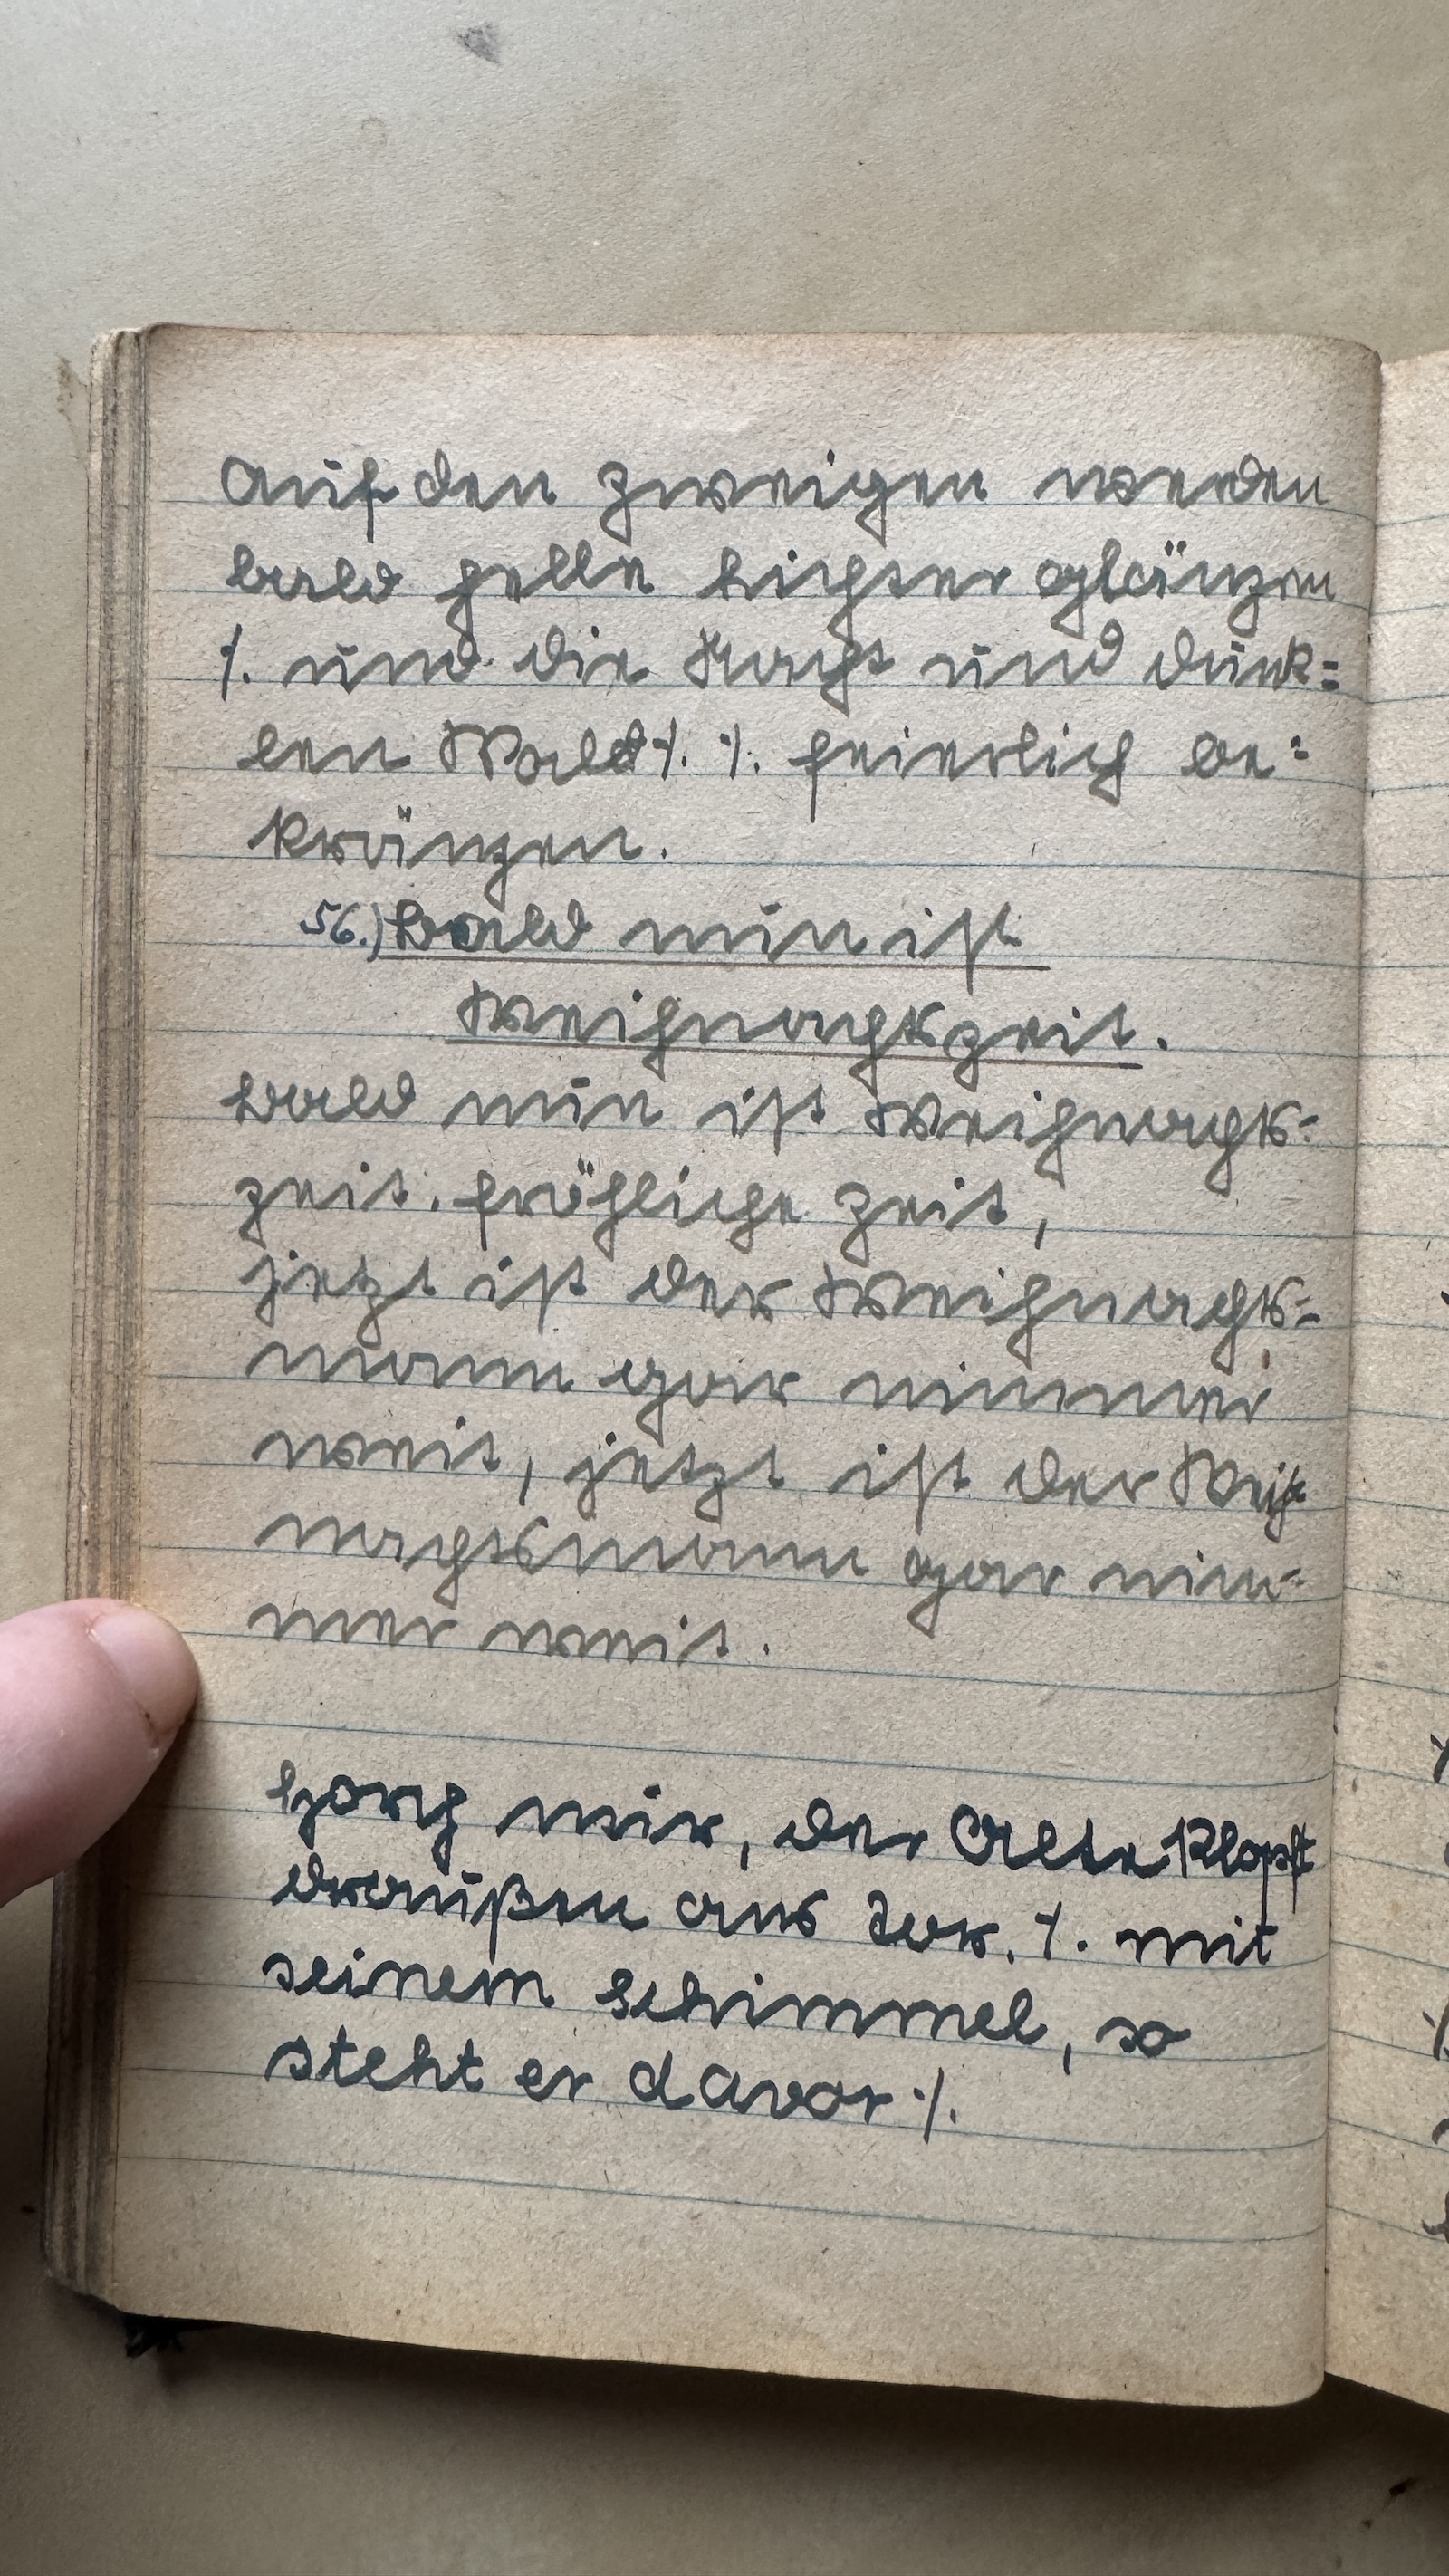 auf den Zweigen werden
bald helle Lichter glänzen
./. und die Nacht und dunk=
len Wald ./. ./. feierlich be=
kränzen.
56.) Bald nun ist
Weihnachtszeit.
Bald nun ist Weihnachts-
zeit. fröhliche Zeit,
jetzt ist der Weihnachts-
mann gar nimmer
weit, jetzt ist der Weih
nachtsmann gar nim-
mer weit.
Horch nur, der Alte klopft
draußen ans Tor. ./. mit
seinem Schimmel, so
steht er davor ./.